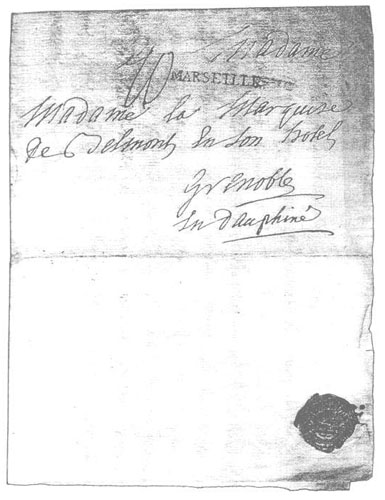 Madame
MARSEILLE
Madame la Marquise
de Belmont En son hotel
Grenoble
En dauphiné